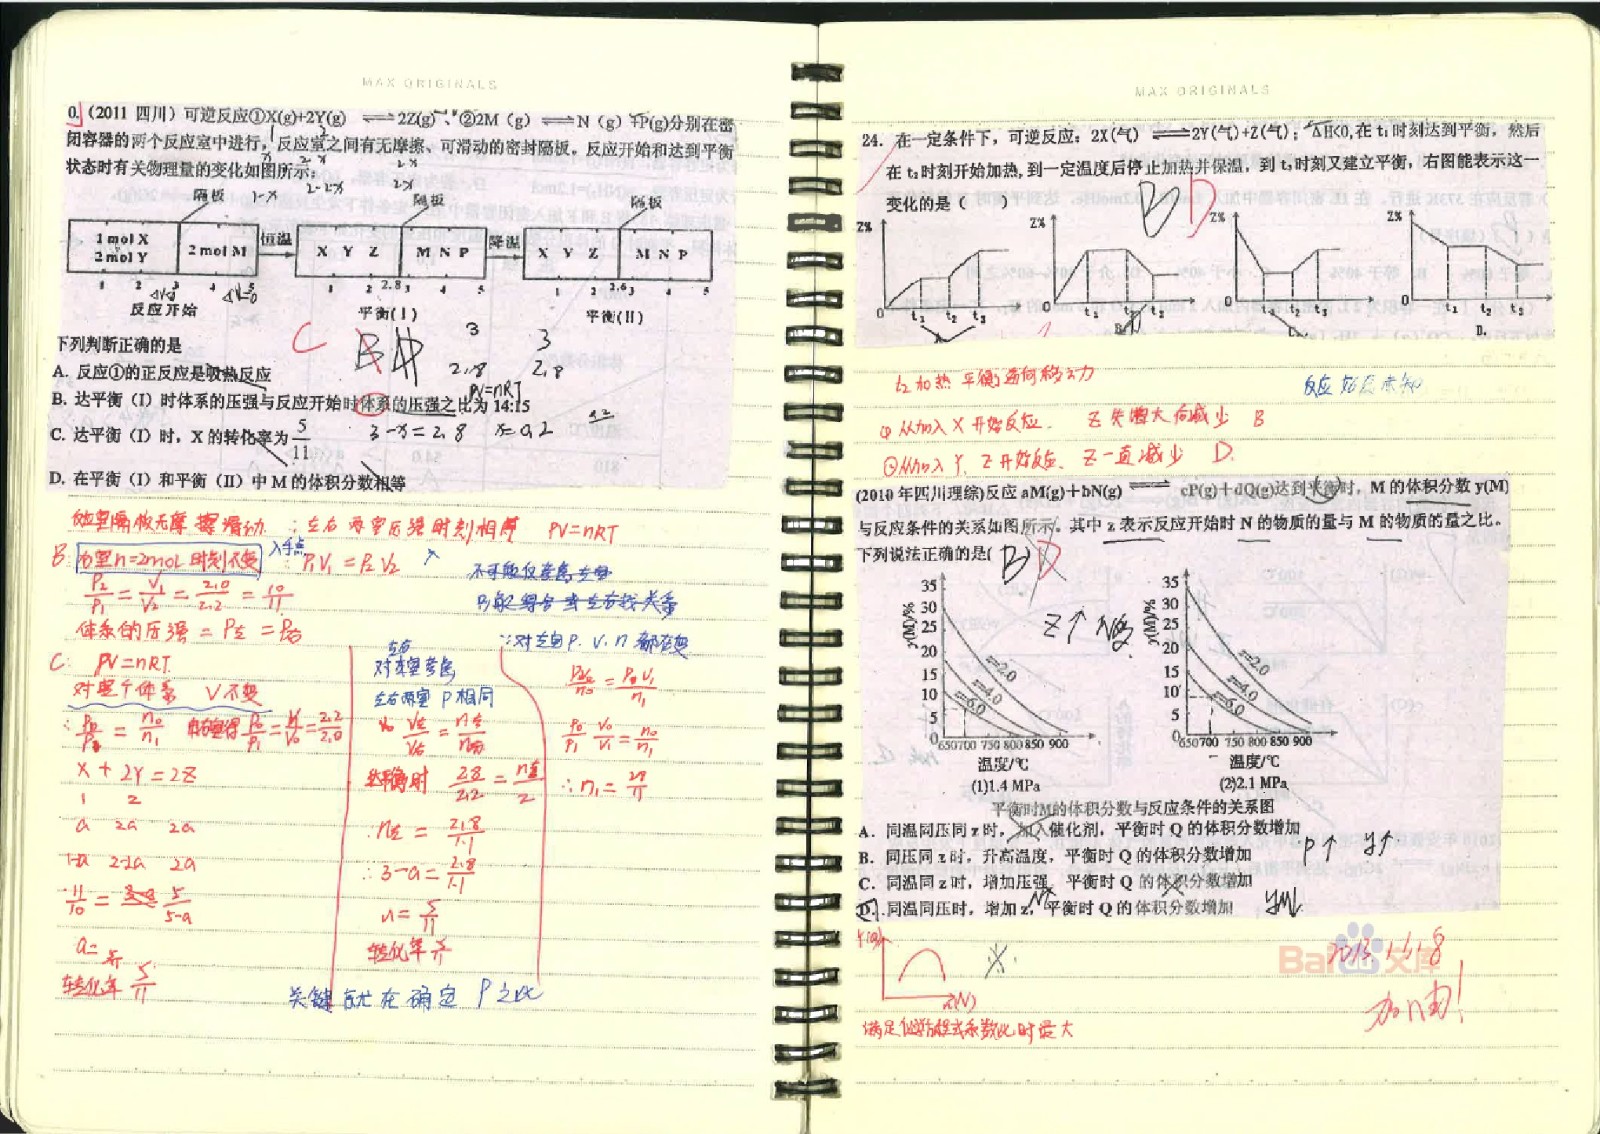 MAX ORIGINALS
0.(2011 四川）可逆反应①X(g)+2Y(g) ⇌2Z(g)、②2M（g）⇌N（g）+P(g)分别在密
闭容器的两个反应室中进行，反应室之间有无摩擦、可滑动的密封隔板。反应开始和达到平衡
状态时有关物理量的变化如图所示：
1-x 2-2x 2x
隔板 隔板 隔板
1 mol X
2 mol Y
2 mol M
恒温
X Y Z M N P
降温
X Y Z M N P
1 2 3 4 5 1 2 2.8 4 5 1 2 2.6 3 4 5
反应开始 平衡(Ⅰ) 平衡(Ⅱ)
下列判断正确的是
C
3 3
2.8 2.8
PV=nRT
A. 反应①的正反应是吸热反应
B. 达平衡（I）时体系的压强与反应开始时体系的压强之比为 14:15
C. 达平衡（I）时，X 的转化率为5/11
3-x=2.8 x=0.2
D. 在平衡（I）和平衡（II）中 M 的体积分数相等
∴左右两室压强时刻相同 PV=nRT
B: 右室n=2mol 时刻不变 入手点 ∴P₁V₁=P₂V₂
P₂/P₁=V₁/V₂=2.0/2.2=10/11
体系的压强=P左=P右
∵对左室P.V.n 都在变
C: PV=nRT
对整个体系 V不变
左右两室 P相同
X+2Y=2Z
1 2
a 2a 2a
1-a 2-2a 2a
11/10= 5/5-a
a=5/11
转化率 5/11
V左/V右=n左/n右
达平衡时 2.8/2.2=n左/2
∴n左=2.8/1.1
∴3-a=2.8/1.1
a=5/11
转化率 5/11
P₀V₀/n₀=P₁V₁/n₁
∴n₁=28/11
关键就在确定 P之比
MAX ORIGINALS
24. 在一定条件下，可逆反应：2X(气) ⇌2Y(气)+Z(气)；△H<0,在 t₁时刻达到平衡，然后
在 t₂时刻开始加热, 到一定温度后停止加热并保温，到 t₃时刻又建立平衡，右图能表示这一
变化的是（ ）
B D
Z% Z% Z% Z%
0 t₁ t₂ t₃ 0 t₁ t₂ t₃ t₁ t₂ t₃ t₁ t₂ t₃
D.
t₂加热 平衡逆向移动
反应始态未知
①从加入 X 开始反应. Z 先增大后减少 B
②从加入 Y、Z 开始反应. Z一直减少 D.
(2010 年四川理综)反应 aM(g)+bN(g) ⇌ cP(g)+dQ(g)达到平衡时，M 的体积分数 y(M)
与反应条件的关系如图所示。其中 z 表示反应开始时 N 的物质的量与 M 的物质的量之比。
下列说法正确的是( )
B D
y(M)/%
35
30
25
20
15
10
5
0
650700 750 800 850 900
z=2.0
z=4.0
z=6.0
温度/℃
(1)1.4 MPa
Z↑
y(M)/%
35
30
25
20
15
10
5
0
650 700 750 800 850 900
z=2.0
z=4.0
z=6.0
温度/℃
(2)2.1 MPa
平衡时M的体积分数与反应条件的关系图
A. 同温同压同 z 时，加入催化剂，平衡时 Q 的体积分数增加
B. 同压同 z 时，升高温度，平衡时 Q 的体积分数增加
P↑ y↑
C. 同温同 z 时，增加压强，平衡时 Q 的体积分数增加
D. 同温同压时，增加 z，平衡时 Q 的体积分数增加
满足化学方程式系数比时最大
Bai 文库
加油!